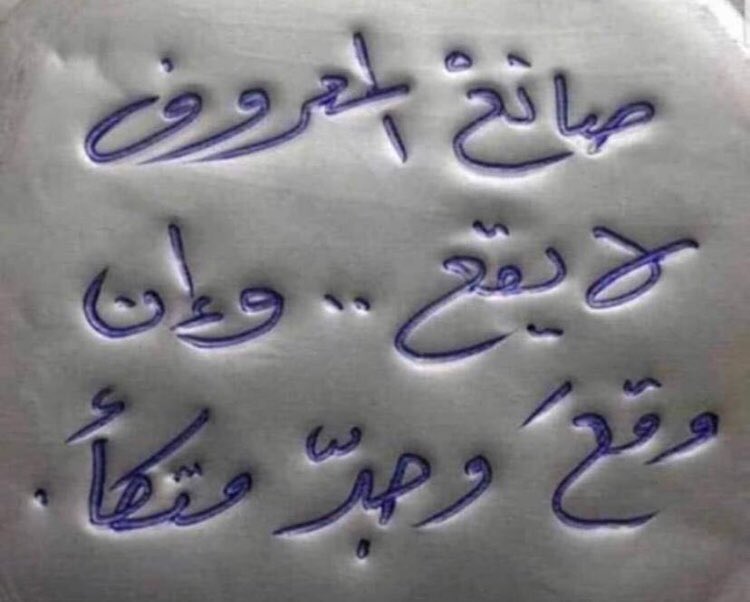 صانعْ المعروف
لا يقع .. وإن
وقعَ وجدّ متكأ .